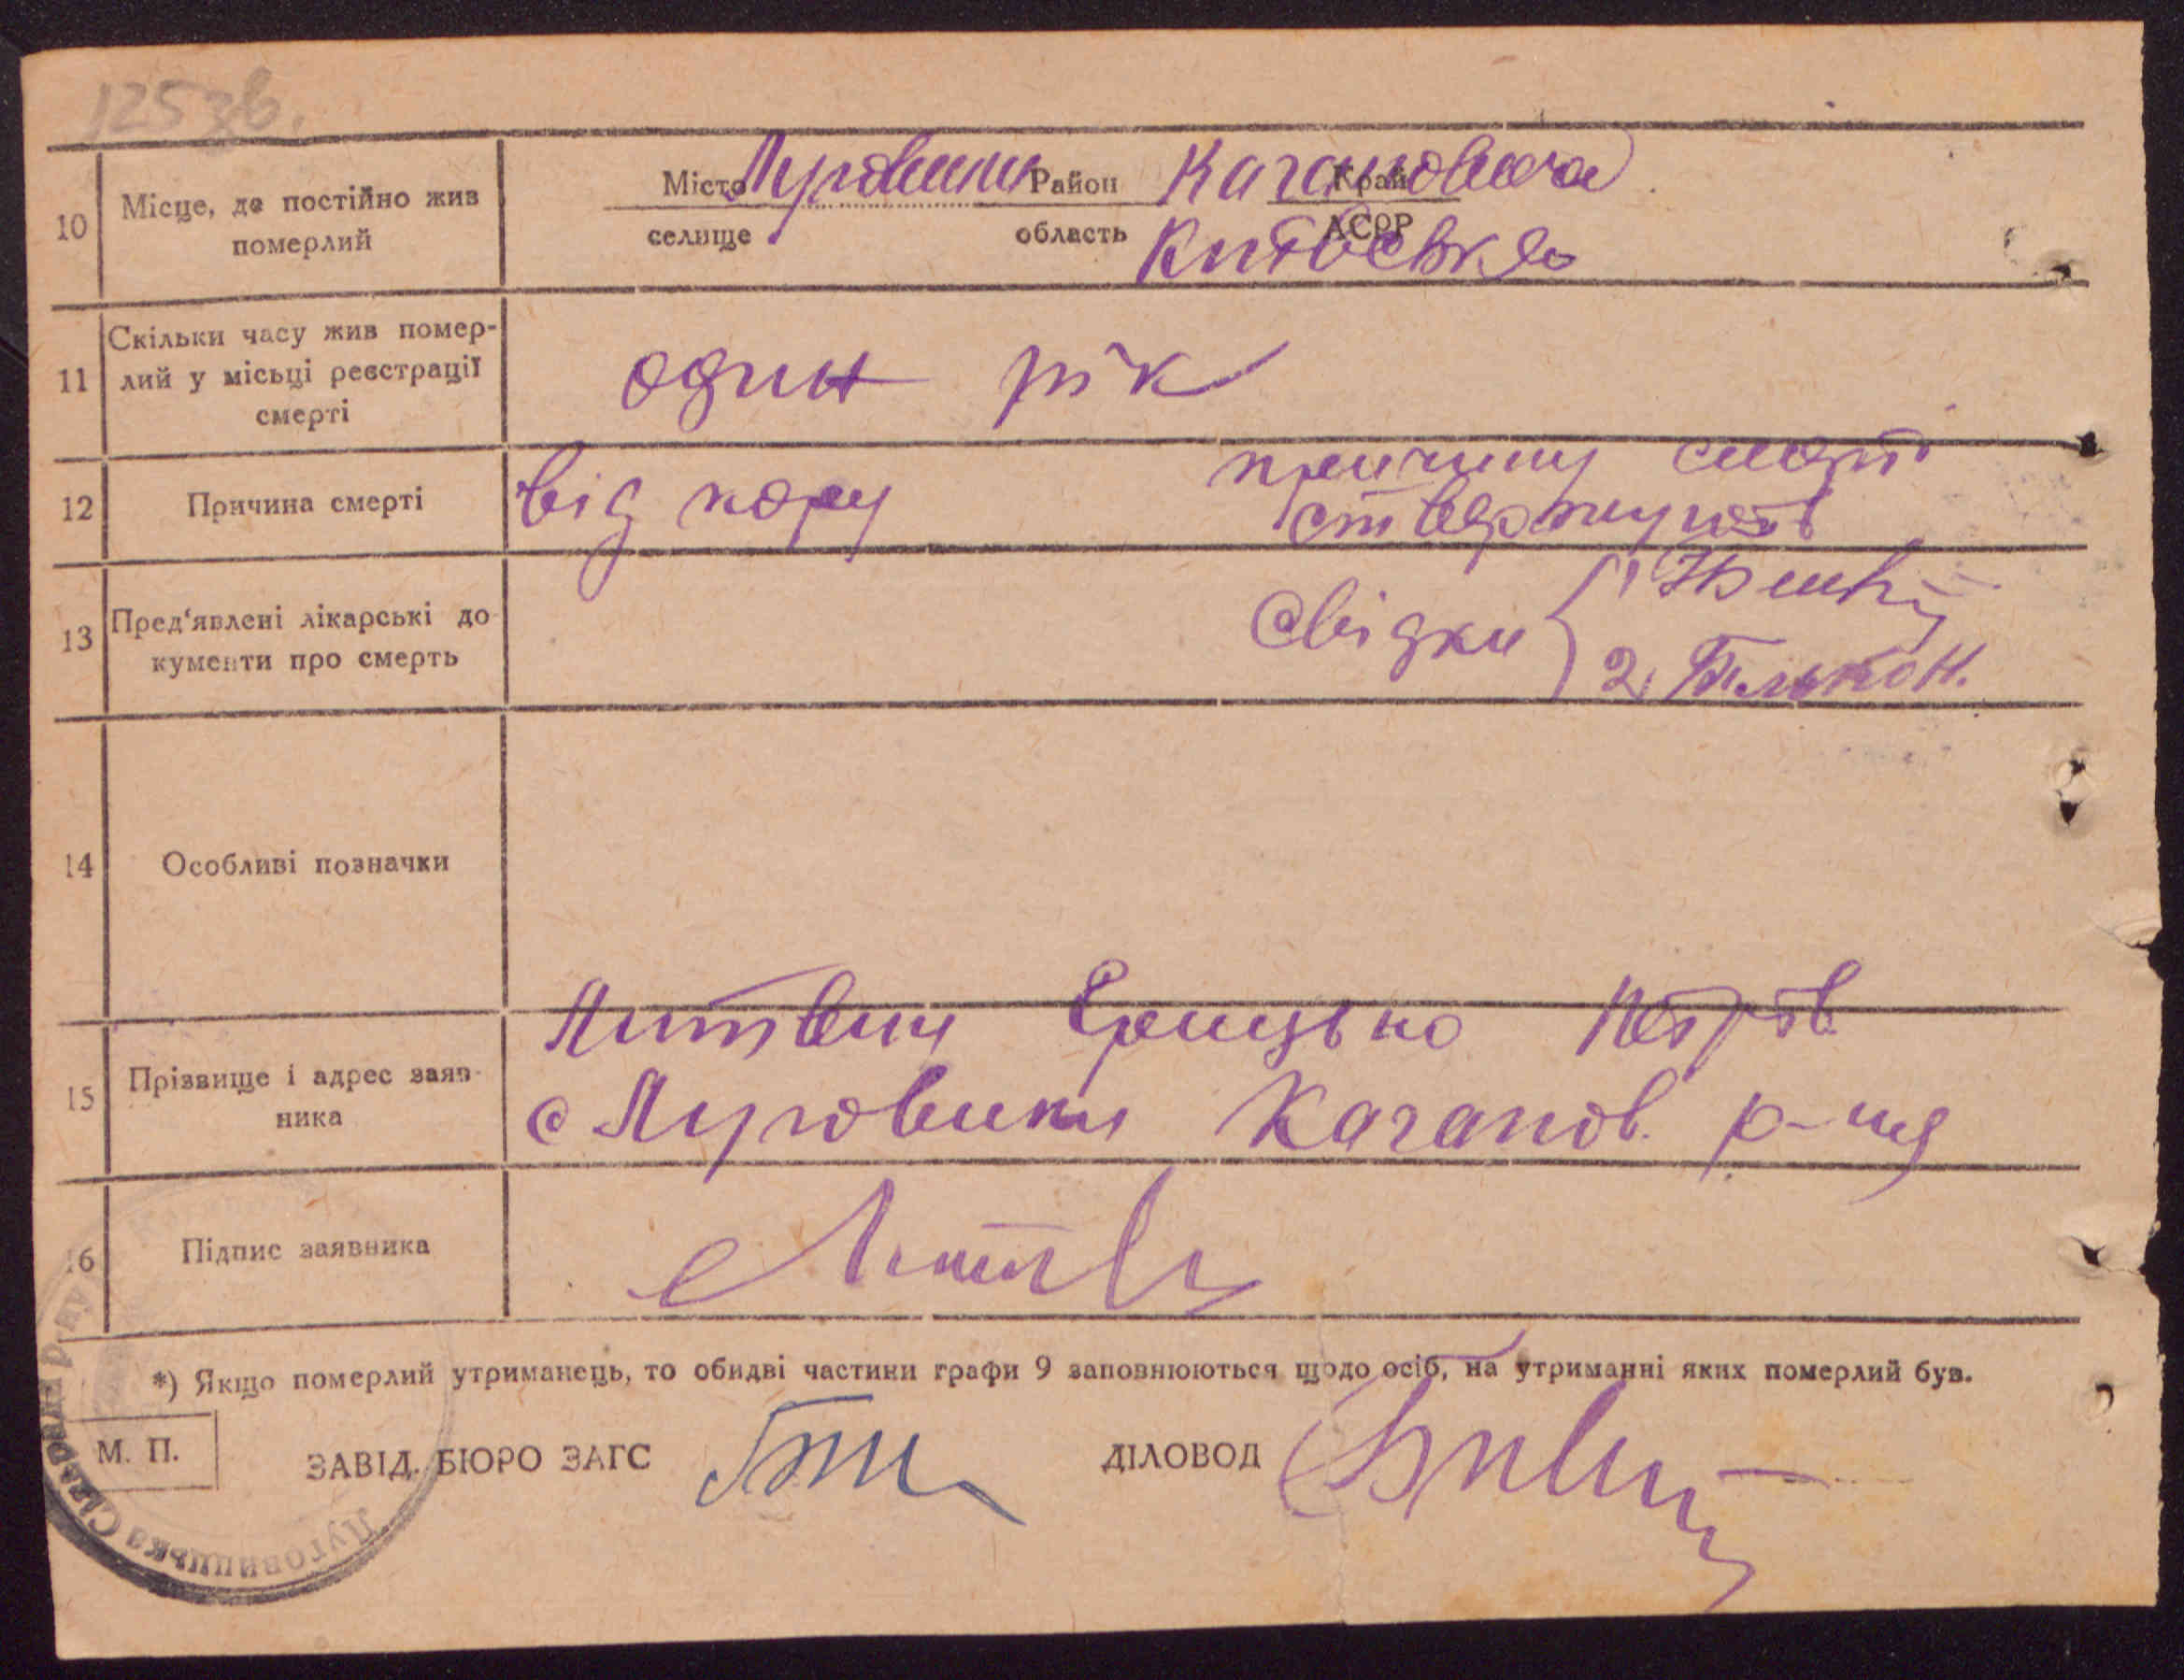 125зв.
10
Місце, де постійно жив
померлий
Місто Луговики Район Кагановича Край
селище область Київська АСРР
11
Скільки часу жив помер-
лий у місьці реєстрації
смерті
один рік
12
Причина смерті
від кору
причину смерті
стверджують
13
Пред'явлені лікарські до-
кументи про смерть
Свідки
1
2.
14
Особливі позначки
15
Прізвище і адрес заяв-
ника
Литвин Грицько Петров
с Луговики Каганов. р-ну
16
Підпис заявника
*) Якщо померлий утриманець, то обидві частини графи 9 заповнюються щодо осіб, на утриманні яких померлий був.
М. П.
ЗАВІД. БЮРО ЗАГС
ДІЛОВОД
Луговицька Сільрада